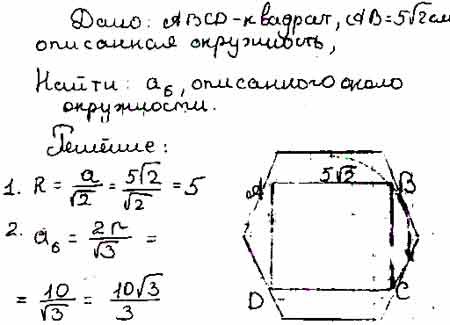 Дано: ABCD-квадрат, AB=5√2см
описанная окружность,
Найти: a₆, описанного около
окружности.
Решение:
1. R = a/√2 = 5√2/√2 = 5
2. a₆ = 2r/√3 =
= 10/√3 = 10√3/3
A 5√3 B
D C